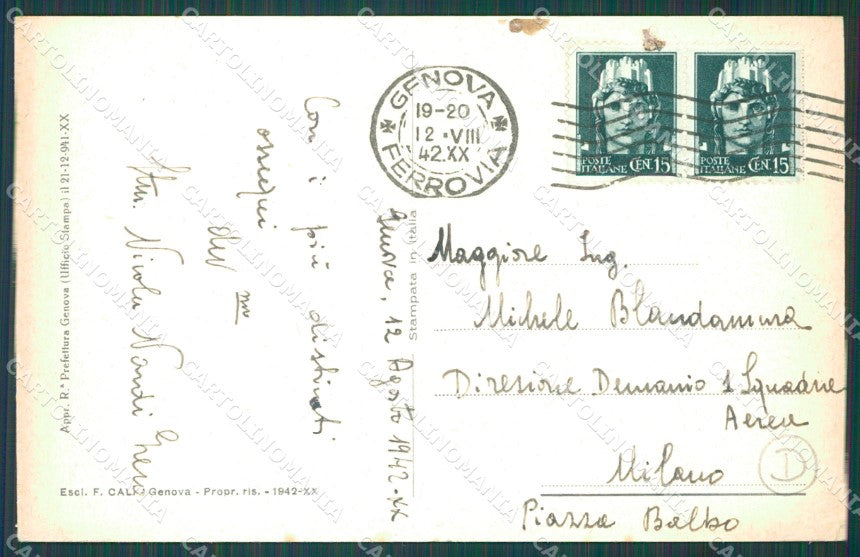 GENOVA
19-20
12·VIII
42.XX
FERROVIA
POSTE ITALIANE CEN. 15
POSTE ITALIANE CEN. 15
Con i più distinti
ossequi
dev mo
Nicola
Genova, 12 Agosto 1942-XX
Stampata in Italia
Maggiore Ing.
Michele Blandamura
Direzione Demanio 1 Squadra
Aerea
Milano
Piazza Balbo
D
Appr. R.ª Prefettura Genova (Ufficio Stampa) il 21-12-941-XX
Escl. F. CALÌ - Genova - Propr. ris. - 1942-XX
CARTOLINOMANIA